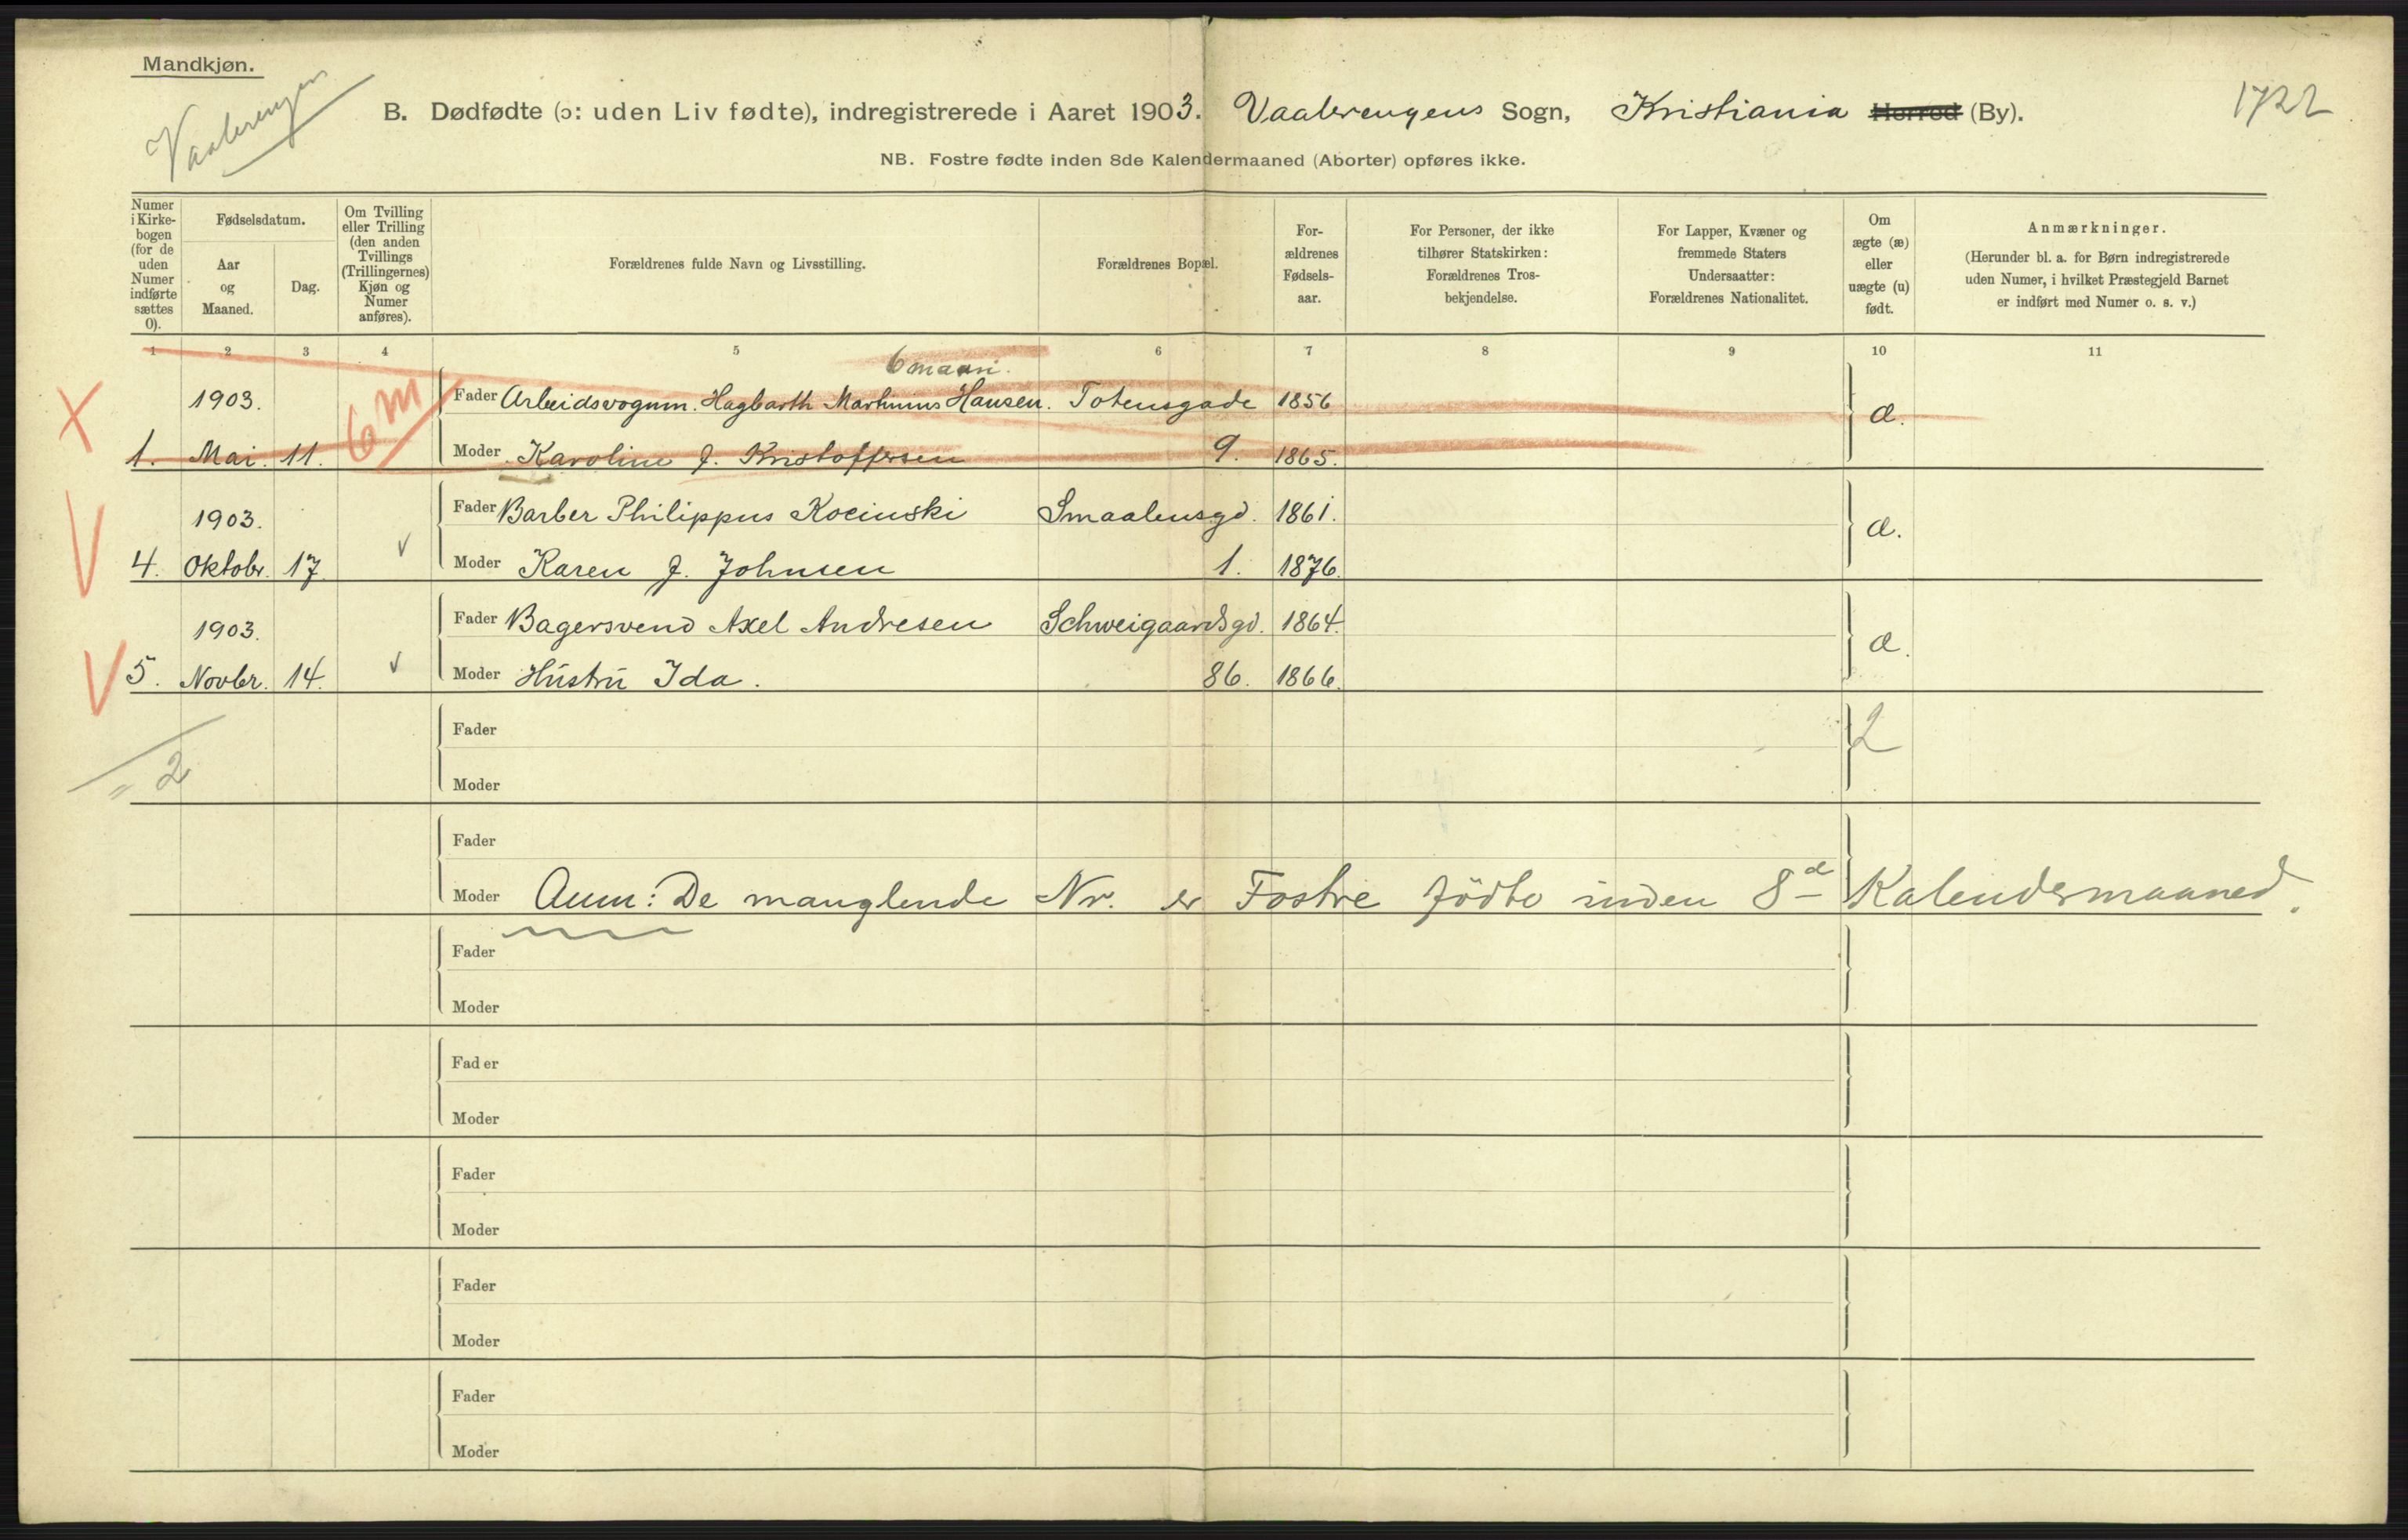 Mandkjøn.
Vaalerengen
B. Dødfødte (ɔ: uden Liv fødte), indregistrerede i Aaret 1903. Vaalerengens Sogn, Kristiania Herred (By).
1722
NB. Fostre fødte inden 8de Kalendermaaned (Aborter) opføres ikke.
Numer i Kirke-bogen (for de uden Numer indførte sættes 0).
Fødselsdatum.
Aar og Maaned.
Dag.
Om Tvilling eller Trilling (den anden Tvillings (Trillingernes) Kjøn og Numer anføres).
Forældrenes fulde Navn og Livsstilling.
Forældrenes Bopæl.
For-ældrenes Fødsels-aar.
For Personer, der ikke tilhører Statskirken: Forældrenes Tros-bekjendelse.
For Lapper, Kvæner og fremmede Staters Undersaatter: Forældrenes Nationalitet.
Om ægte (æ) eller uægte (u) født.
Anmærkninger.
(Herunder bl. a. for Børn indregistrerede uden Numer, i hvilket Præstegjeld Barnet er indført med Numer o. s. v.)
1 2 3 4 5 6 7 8 9 10 11
6 maan.
1903. 6 m Fader Arbeidsvognm. Hagbarth Marthinius Hansen. Totensgade 1856 æ.
1. Mai. 11. Moder Karoline J. Kristoffersen 9. 1865.
1903. Fader Barber Philippus Kocinski Smaalensgd. 1861. æ.
4. Oktobr. 17 Moder Karen J. Johnsen 1. 1876.
1903. Fader Bagersvend Axel Andresen Schweigaardsgd. 1864. æ.
5. Novbr. 14. Moder Hustru Ida. 86. 1866.
Fader 2
= 2 Moder
Fader
Moder Anm: De manglende Nr. er Fostre fødte inden 8de Kalendermaaned.
Fader
Moder
Fader
Moder
Fader
Moder
Fader
Moder
Fader
Moder